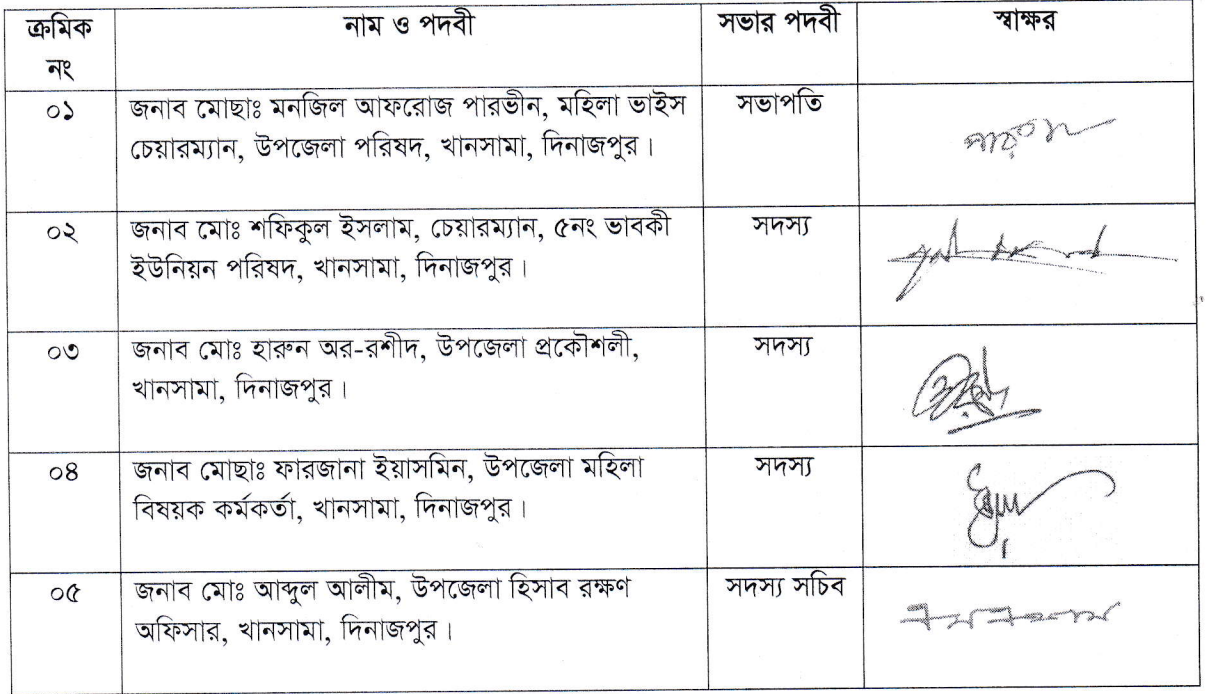 ক্রমিক নং নাম ও পদবী সভার পদবী স্বাক্ষর
০১ জনাব মোছাঃ মনজিল আফরোজ পারভীন, মহিলা ভাইস সভাপতি
চেয়ারম্যান, উপজেলা পরিষদ, খানসামা, দিনাজপুর।
০২ জনাব মোঃ শফিকুল ইসলাম, চেয়ারম্যান, ৫নং ভাবকী সদস্য
ইউনিয়ন পরিষদ, খানসামা, দিনাজপুর।
০৩ জনাব মোঃ হারুন অর-রশীদ, উপজেলা প্রকৌশলী, সদস্য
খানসামা, দিনাজপুর।
০৪ জনাব মোছাঃ ফারজানা ইয়াসমিন, উপজেলা মহিলা সদস্য
বিষয়ক কর্মকর্তা, খানসামা, দিনাজপুর।
০৫ জনাব মোঃ আব্দুল আলীম, উপজেলা হিসাব রক্ষণ সদস্য সচিব
অফিসার, খানসামা, দিনাজপুর।